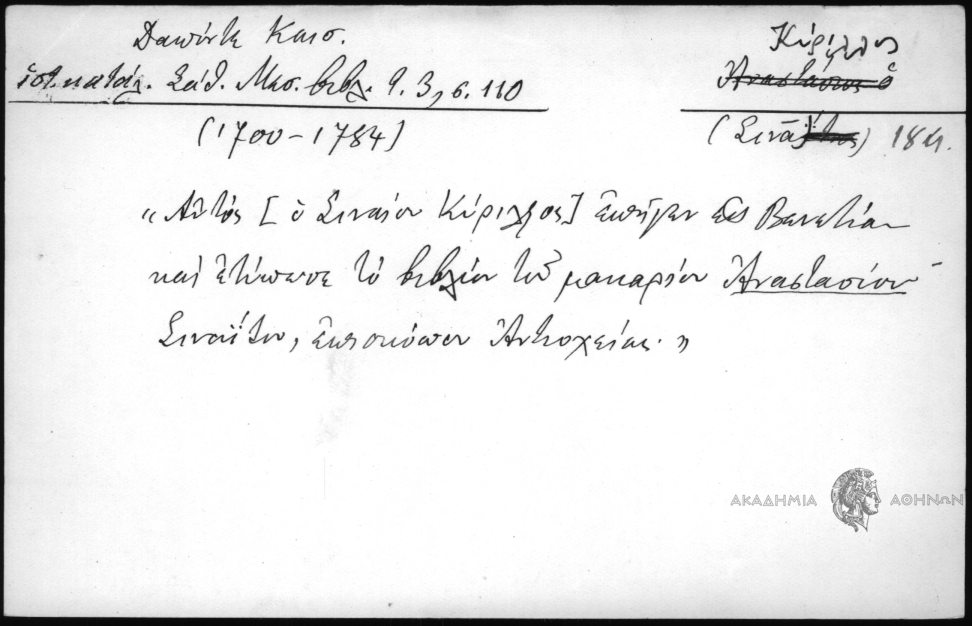 Δαπόντε Καισ.
Κύριλλος
ἱστ. κατάλ. Σάθ. Μεσ. βιβλ. τ. 3, σ. 110
Ἀναστάσιος ὁ
(1700-1784)
(Σιναΐτης) 18 αι.
« Αὐτὸς [ὁ Σιναίου Κύριλλος] ἐπῆγεν εἰς Βενετίαν
καὶ ἐτύπωσε τὸ βιβλίον τοῦ μακαρίου Ἀναστασίου
Σιναΐτου, ἐπισκόπου Ἀντιοχείας. »
ΑΚΑΔΗΜΙΑ ΑΘΗΝΩΝ